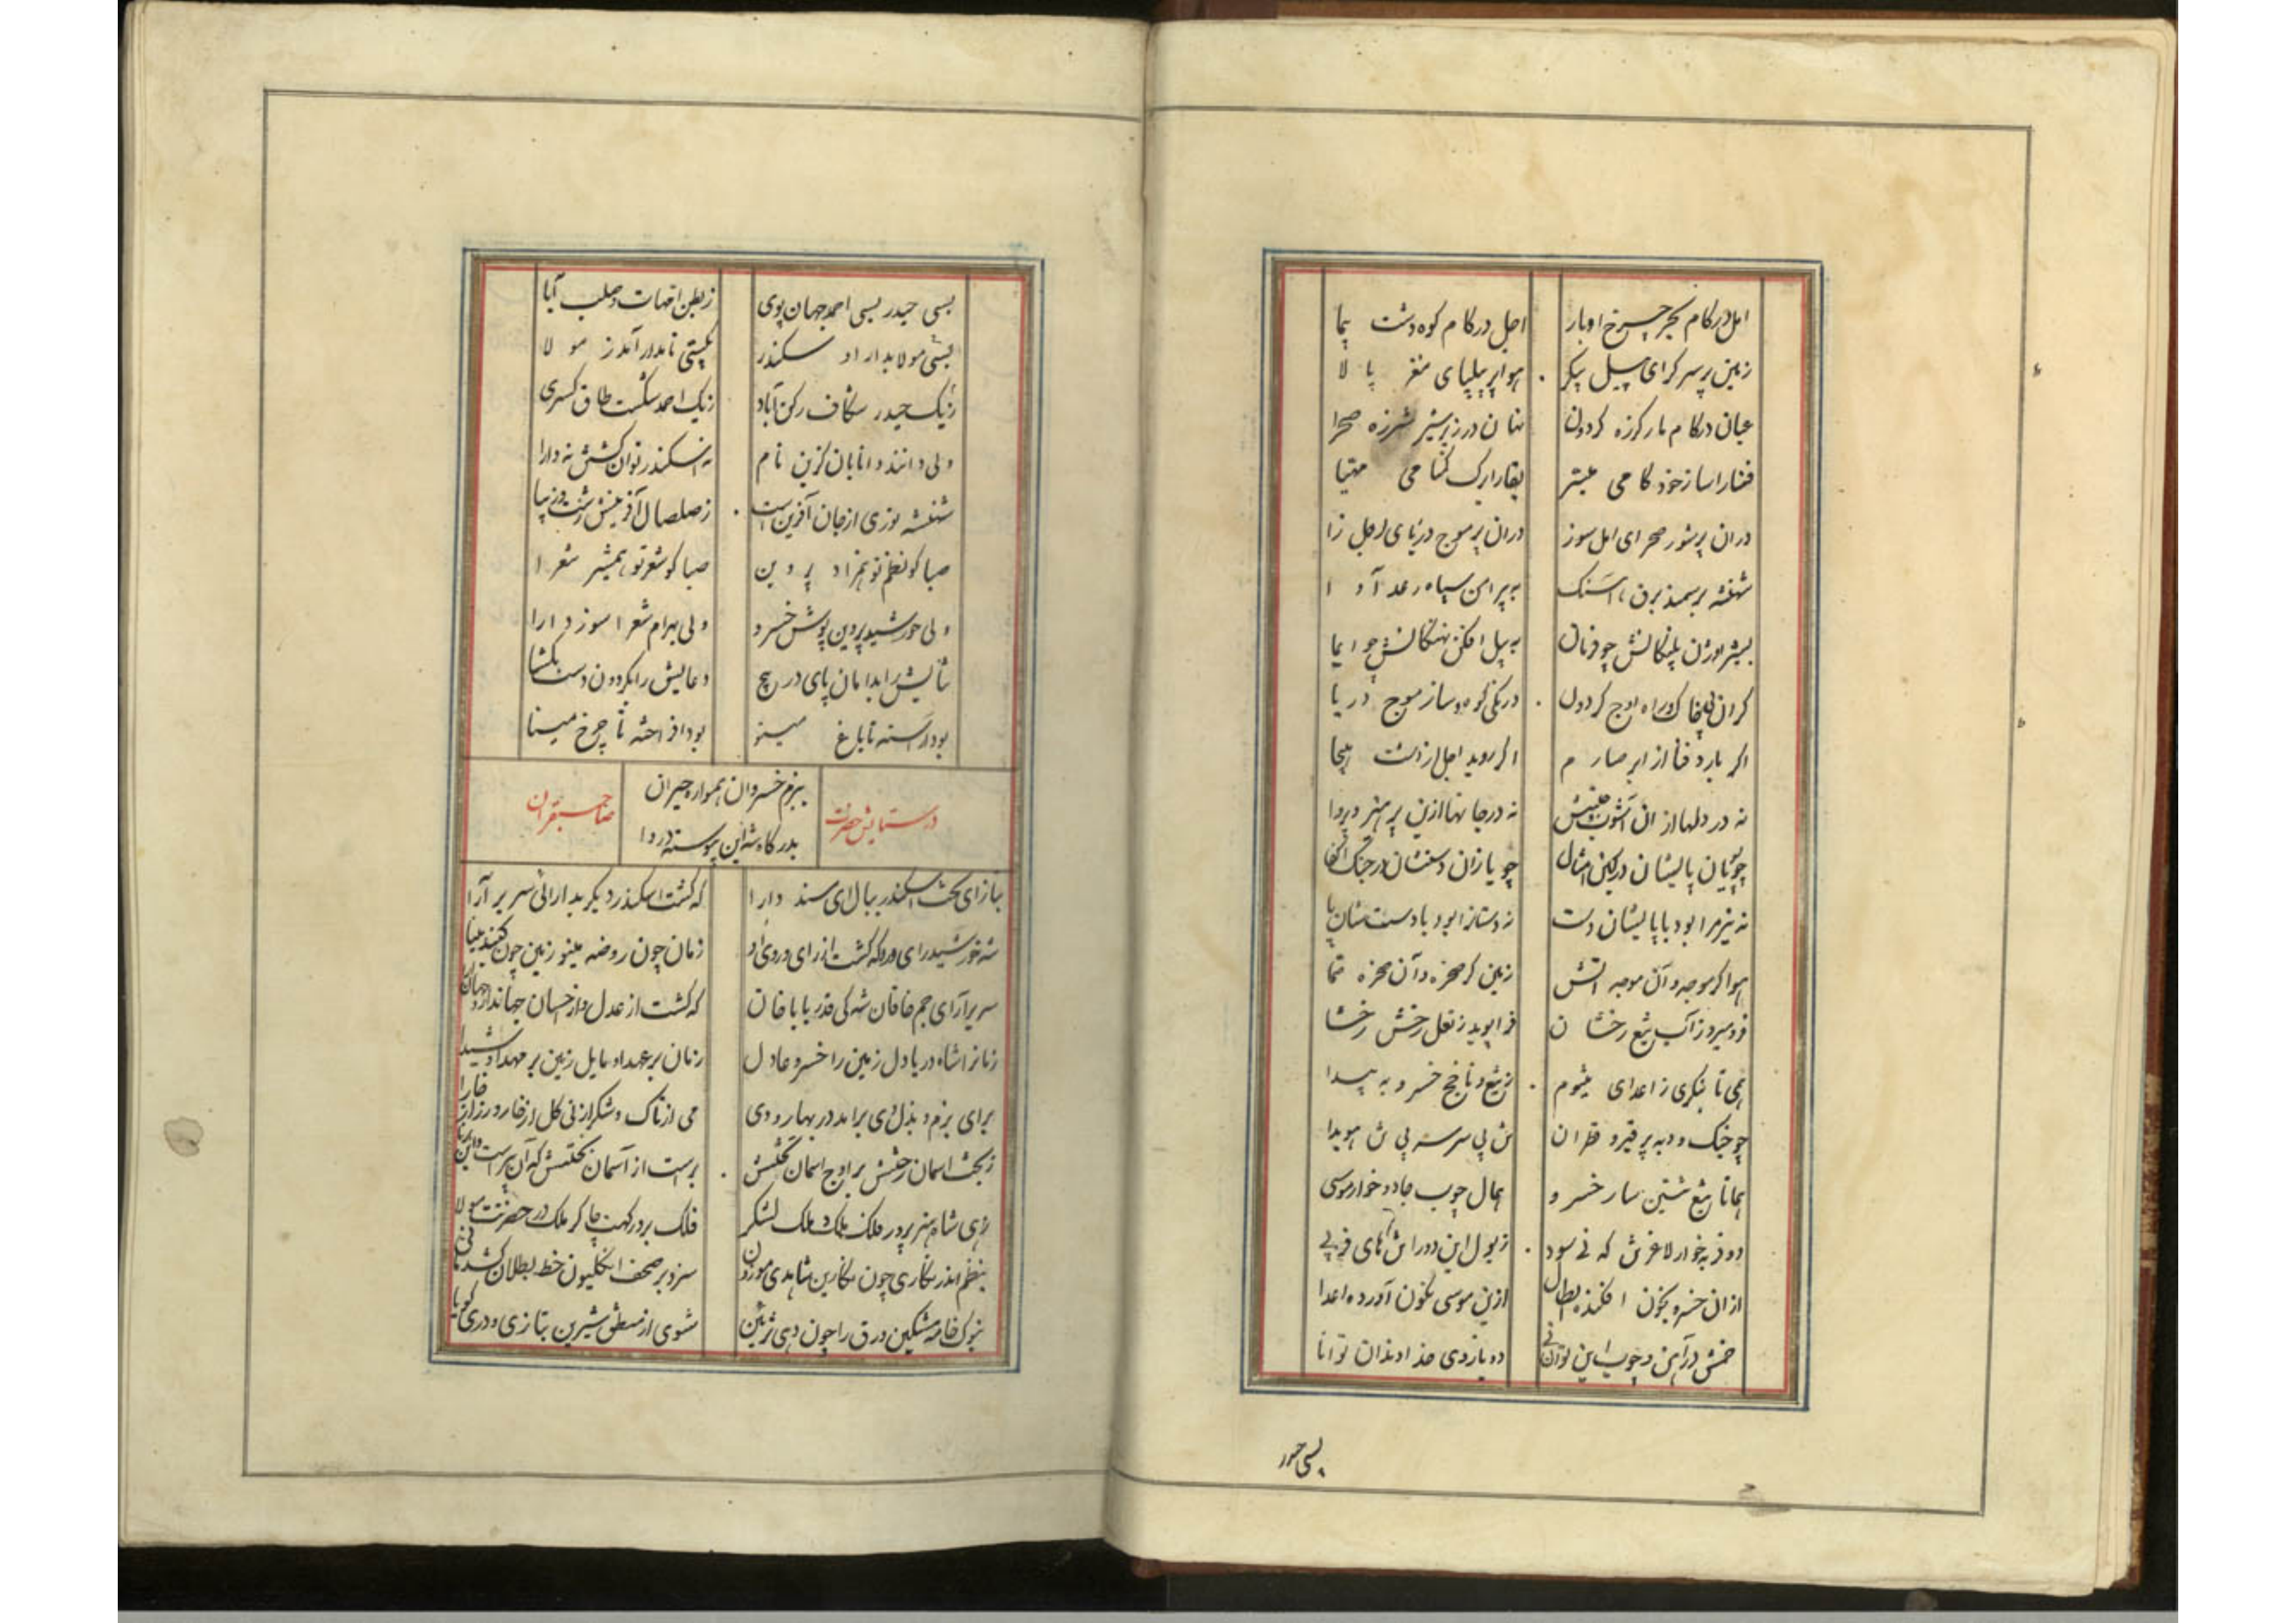 امل در کام بحر چرخ اوبار
اجل در کام کوه و دشت پیما
زمین پر سرگرای پیل پیکر
هوا پر پیلپای مغز پالا
عیان در کام مار گرزه گردون
نهان در زیر شیر شرزه صحرا
در ان پر شور صحرای امل سوز
در ان پر موج دریای اجل زا
شهنشه بر سمند برق
به پیرامن سپاه رعد آوا
بشیر اوژن پلنگانش چو فرمان
به پیل افکن نهنگانش چو ایما
گران
درنگی کوه و ساز موج دریا
اگر بارد فنا از ابر صارم
اگر روید اجل از دشت هیجا
نه در دلها از ان آشوب جنبش
نه در جانها ازین پرهیز و پروا
چو پویان پایشان در کین
چو یازان دستشان در جنگ
نه نیزه را بود با پایشان دست
نه دستان را بود با دستشان پا
هوا گر موجه و آن موجه آتش
زمین گر صخره و آن صخره صما
فرو میرد ز آب تیغ رخشان
فرا پوید ز نعل رخش رخشا
همی تا بنگری ز اعدای میشوم
ز تیغ و ناچخ خسرو به بیدا
چو خیک و دبه پر قیر و قطران
تن بی سر سر بی تن هویدا
همانا تیغ ثعبان سار خسرو
همال چوب جادو خوار موسی
از ان خسرو بخون افکنده ابطال
ازین موسی نگون آورده اعدا
دو بازوی خداوندان توانا
بسی حیدر
بسی حیدر بسی احمد جهان پوی
ز بطن امهات و صلب آبا
بسی مولا بدار او سکندر
بگیتی نامدار آمد ز مولا
ز یک حیدر شکاف رکن آباد
ز یک احمد شکست طاق کسری
ولی دانند دانایان کزین نام
نه اسکندر توان گشتن نه دارا
شهنشه نوری از جان آفرین است
ز صلصال آفرینش زشت و زیبا
صبا گو نظم تو همزاد پروین
صبا گو شعر تو همشیر شعرا
ولی خورشید پروین پوش خسرو
ولی بهرام شعرا سوز دارا
ثنایش را بدامان پای در پیچ
دعایش را بگردون دست بگشا
بود آراسته تا باغ مینو
بود افراخته تا چرخ مینا
ببزم خسروان همواره حیران
بدرگاه شه این پیوسته دروا
در ستایش حضرت صاحبقران
بناز ای تخت اسکندر ببال ای مسند دارا
که گشت اسکندر دیگر بدارائی سریر آرا
زمان چون روضه مینو زمین چون گنبد مینا
سریر آرای جم خاقان شه کی قدر بابا خان
که گشت از عدل و از احسان جهاندار و جهان آرا
زمان را شاه دریا دل زمین را خسرو عادل
زمان بر عهد او مایل زمین بر مهد او شیدا
برای بزم و بذل وی برآید در بهار و دی
می از تاک و شکر از نی گل از خار و زر از خارا
ز بخت آسمان رخشش بر اوج آسمان تختش
زهی شاه هنر پرور فلک ملک و ملک لشکر
فلک بر درگهت چاکر ملک در حضرتت مولا
بنظم اندر نگاری چون نگارین شاهدی موزون
سزد بر صحف انگلیون خط بطلان کشد
بنوک خامه مشکین ورق را چون دهی تزیین
شوی از منطق شیرین بتازی و دری گویا